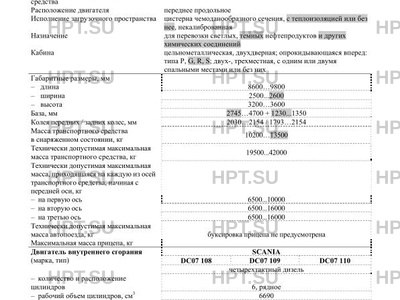 средства
Расположение двигателя переднее продольное
Исполнение загрузочного пространства цистерна чемоданообразного сечения, с теплоизоляцией или без
нее, некалиброванная
Назначение для перевозки светлых, темных нефтепродуктов и других
химических соединений
Кабина цельнометаллическая, двухдверная; опрокидывающаяся вперед:
типа P, G, R, S, двух-, трехместная, с одним или двумя
спальными местами или без них
Габаритные размеры, мм
– длина 8600…9800
– ширина 2500…2600
– высота 3200…3600
База, мм 2745…4700 + 1230…1350
Колея передних / задних колес, мм 2030…2154 / 1793…2154
Масса транспортного средства
в снаряженном состоянии, кг 10200…13500
Технически допустимая максимальная
масса транспортного средства, кг 19500…42000
Технически допустимая максимальная
масса, приходящаяся на каждую из осей
транспортного средства, начиная с
передней оси, кг
– на первую ось 6500…10000
– на вторую ось 6500…16000
– на третью ось 6500…16000
Технически допустимая максимальная
масса автопоезда, кг буксировка прицепа не предусмотрена
Максимальная масса прицепа, кг
Двигатель внутреннего сгорания SCANIA
(марка, тип) DC07 108 DC07 109 DC07 110
четырехтактный дизель
– количество и расположение
цилиндров 6, рядное
– рабочий объем цилиндров, см³ 6690
НРТ.SU НРТ.SU НРТ.SU
НРТ.SU НРТ.SU НРТ.SU
НРТ.SU НРТ.SU НРТ.SU
НРТ.SU НРТ.SU НРТ.SU
НРТ.SU НРТ.SU НРТ.SU
НРТ.SU НРТ.SU НРТ.SU